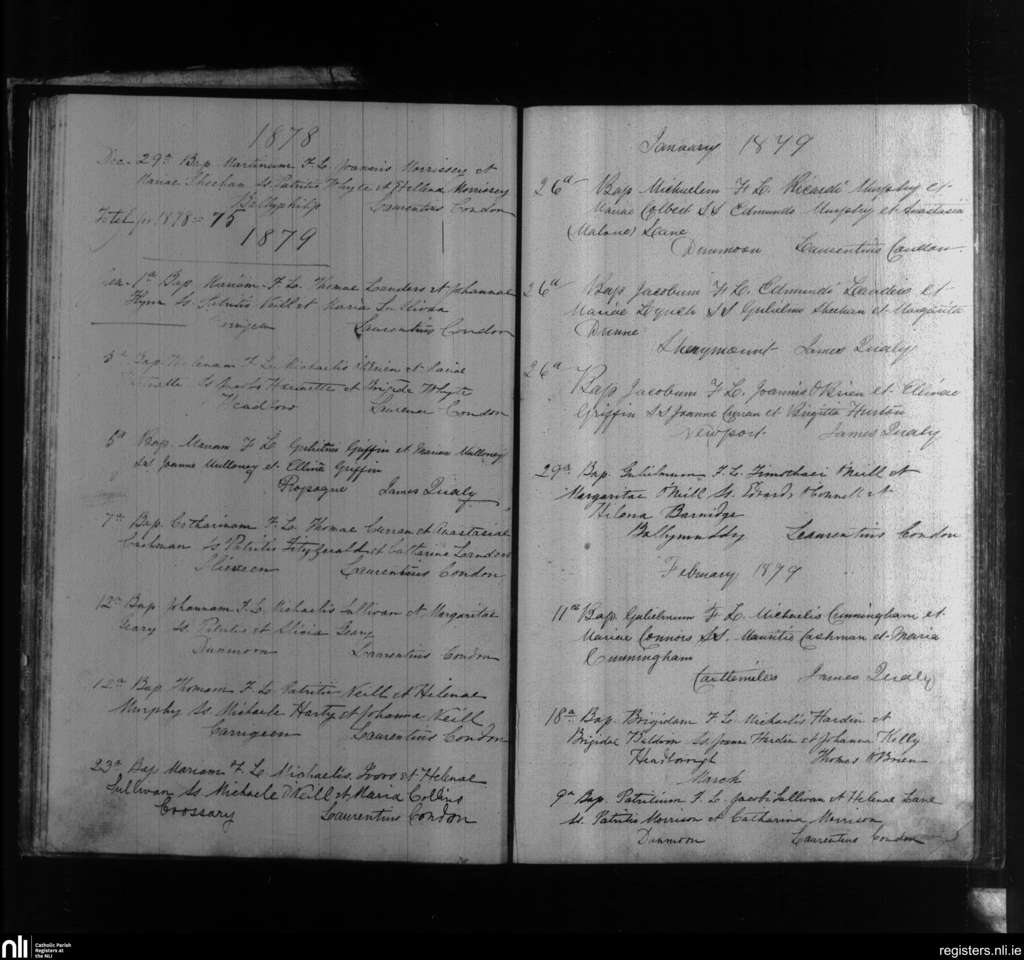 1878
Dec. 29a Bap. Martinum F. L. Joannis Morrissey et
Mariae Sheehan Ss. Patritis Whyte et Hellena Morrissey
Ballyphilip Laurentius Condon
Total for 1878 = 75
1879
1a Bap. Mariam F. L. Thomae Landers et Johannae
Flynn Ss. Patritis Neill et Maria Sullivan
Corrigeen Laurentius Condon
5a Bap. Helenam F. L. Michaelis OBrien et Mariae
Ss. et Brigida Whyte
Headboro Laurence Condon
5a Bap. Mariam F L Gulielmi Griffin et Mariae Mulloney
SS Joanne Mulloney et Ellina Griffin
Propogue James Qualy
7a Bap. Catharinam F. L. Thomae Curran et Anastasiae
Cashman Ss Patritis Fitzgerald et Catharine Landers
Laurentius Condon
12a Bap. Johannam F. L. Michaelis Sullivan et Margaritae
Geary Ss. Patritis et Alicia Geary
Dunmoon Laurentius Condon
12a Bap. Thomam F. L. Patritis Neill et Helenae
Murphy Ss Michaele Harty et Johanna Neill
Carrigeen Laurentius Condon
23a Bap Mariam F. L. Michaelis et Helenae
Sullivan Ss Michaele ONeill et Maria Collins
Crossary Laurentius Condon
January 1879
26a Bap Michaelem F L. Ricardi Murphy et
Mariae Colbert SS Edmundo Murphy et Anastasia
(Malone) Lane
Dunmoon Laurentius Condon
26a Bap Jacobum F L. Edmundi Landers et
Mariae Lynch SS Gulielmo Sheehan et Margarita
Dunne
Sherrymount James Qualy
26a Bap Jacobum F L. Joannis OBrien et Ellinae
Griffin SS Joanne Curran et Brigitta Hurton
Newport James Qualy
29a Bap. Gulielmum F. L. Timothaei ONeill et
Margaritae ONeill Ss. Edwardo OConnell et
Helena Barnidge
Ballymuddy Laurentius Condon
February 1879
11a Bap. Gulielmum F L. Michaelis Cunningham et
Mariae Connors SS. Mauritio Cashman et Maria
Cunningham
Castlemiles James Qualy
18a Bap. Brigidam F. L. Michaelis Harden et
Brigidae Baldwin Ss Joanne Harden et Johanna Kelly
Headborough Thomas OBrien
March
9a Bap. Patritium F. L. Jacobi Sullivan et Helenae Lane
Ss. Patritis Morrison et Catharina Morrison
Dunmoon Laurentius Condon
nli Catholic Parish
Registers at
the NLI
registers.nli.ie